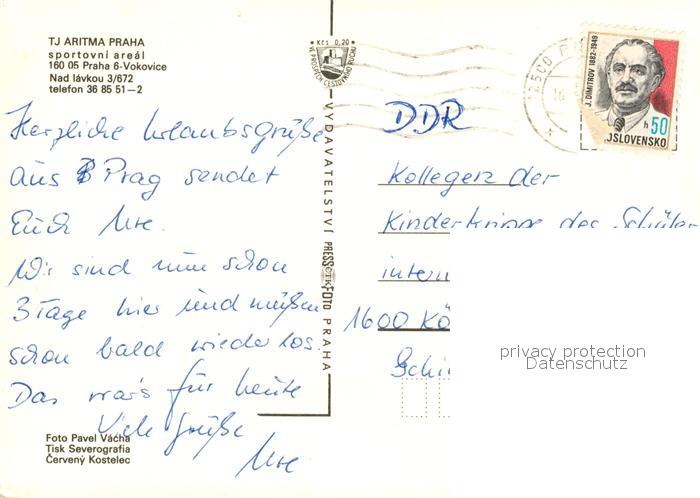 TJ ARITMA PRAHA
sportovní areál
160 05 Praha 6-Vokovice
Nad lávkou 3/672
telefon 36 85 51—2
Kčs 0,20
VE PROSPĚCH CESTOVNÍHO RUCHU
VYDAVATELSTVÍ PRESSFOTO PRAHA
J. DIMITROV 1882-1949
h 50
OSLOVENSKO
Herzliche Urlaubsgrüße
aus Prag sendet
Euch Ute.
Wir sind nun schon
3 Tage hier und müßen
schon bald wieder los.
Das war's für heute
Viele Grüße
Ute
DDR
Kollegen der
Kinderkrippe des Schüler-
intern
1600 Kö
Schi
Foto Pavel Vácha
Tisk Severografia
Červený Kostelec
privacy protection
Datenschutz